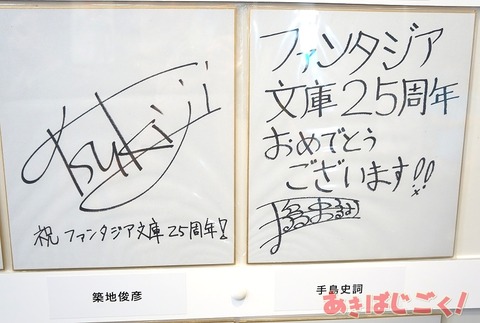 Tsukiji
祝 ファンタジア文庫25周年!
築地俊彦
ファンタジア
文庫25周年
おめでとう
ございます!!
手島史詞
あきばじごく!